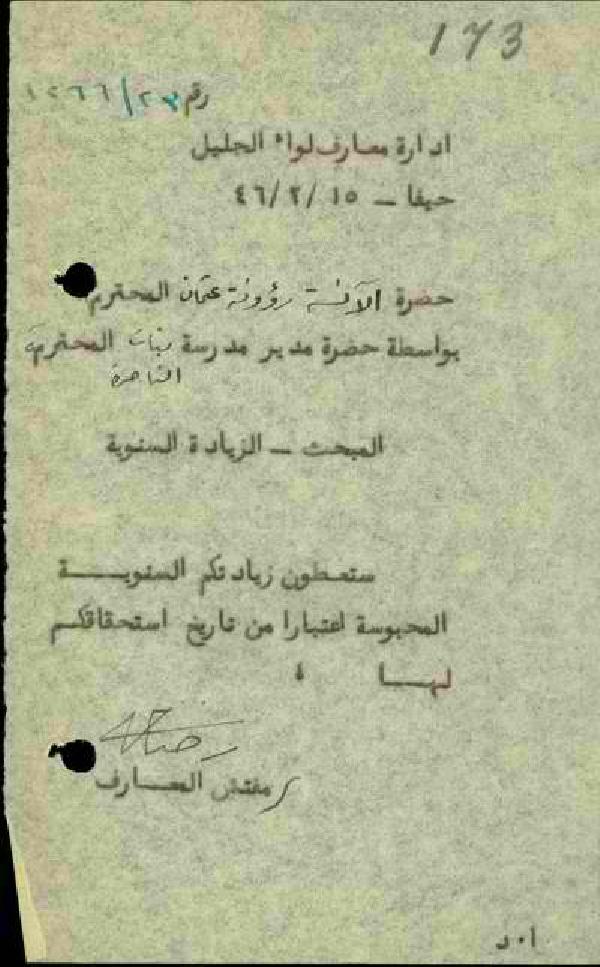 173
رقم ٢٣/١٢٦٦
ادارة معارف لواء الجليل
حيفا – ١٥ /٢ /٤٦
حضرة الآنسة رؤوفة عثمان المحترم
بواسطة حضرة مدير مدرسة بنات المحترمة
الناصرة
المبحث – الزيادة السنوية
ستعطون زيادتكم السنويـــة
المحبوسة اعتبارا من تاريخ استحقاقكـم
لهـــا ،
مفتش المعـــارف
ا٠د